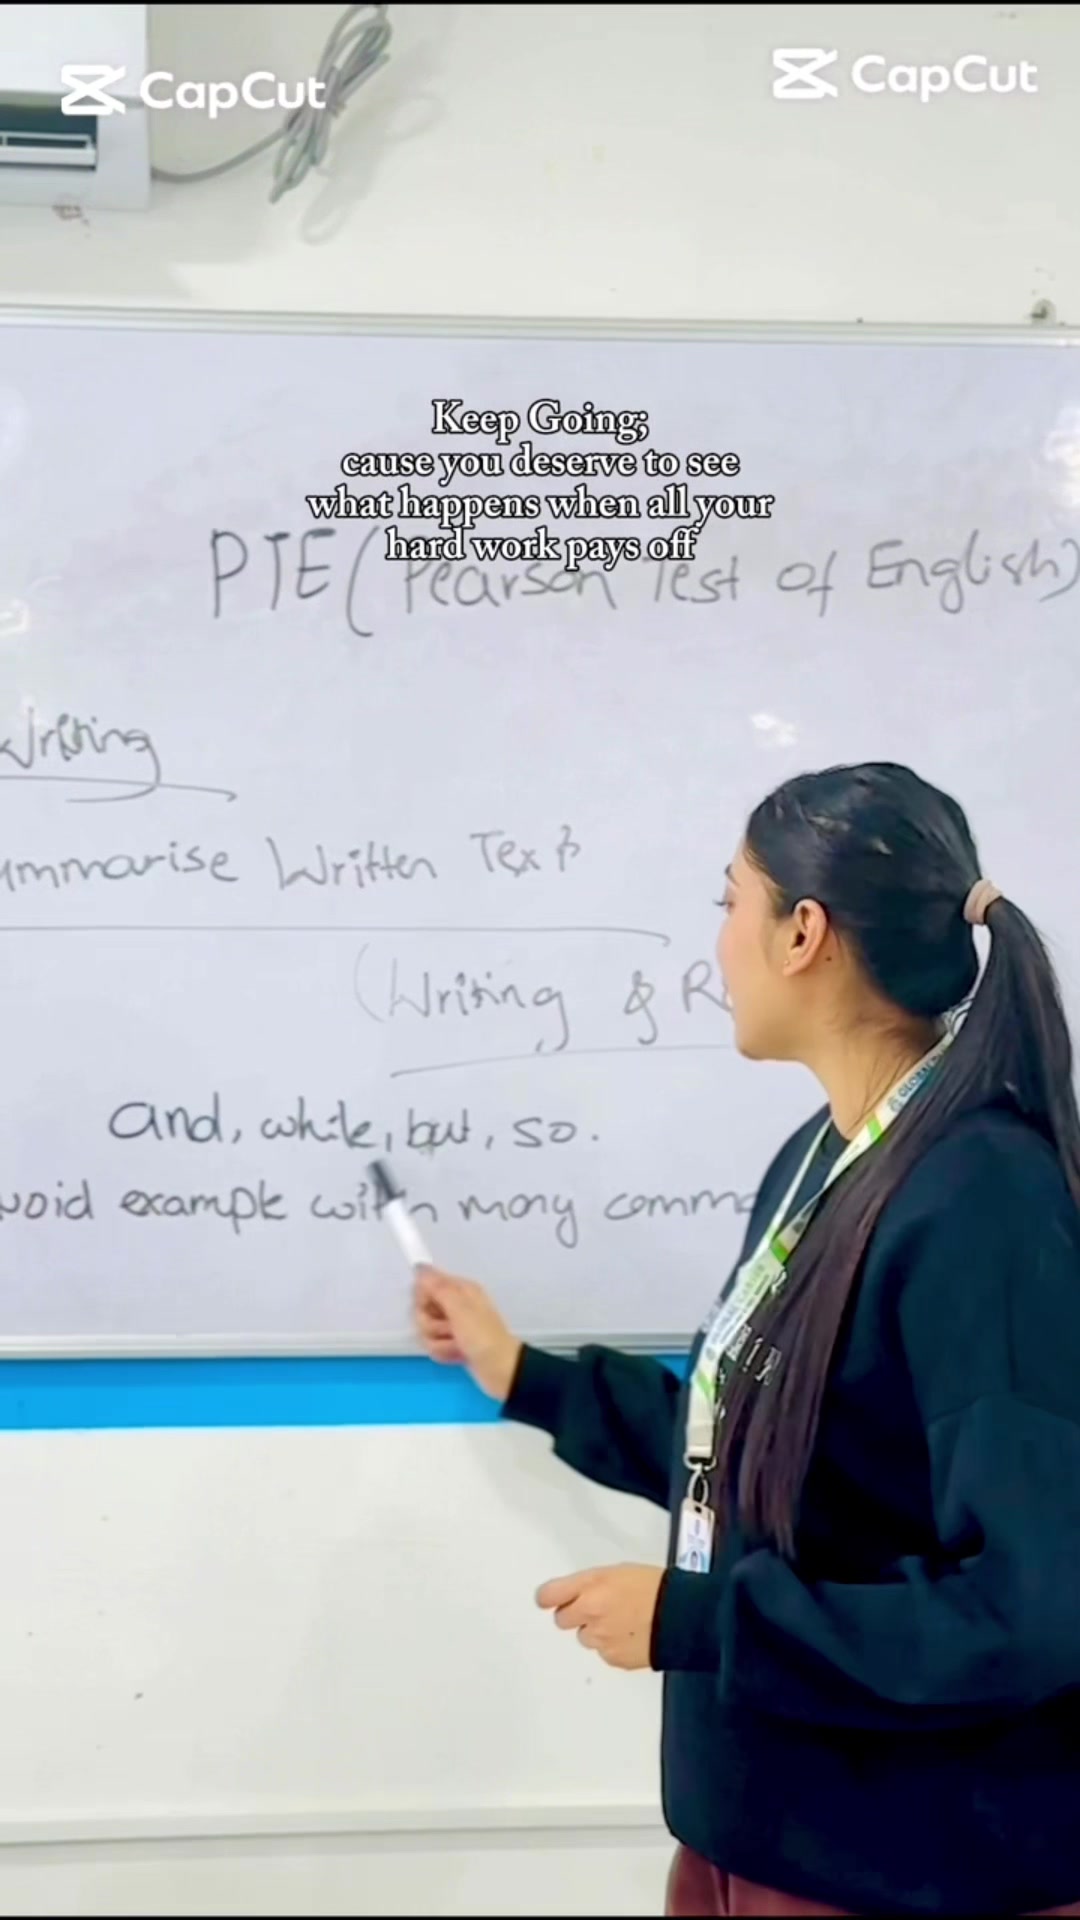 CapCut
CapCut
Keep Going;
cause you deserve to see
what happens when all your
hard work pays off
PTE (Pearson Test of English)
Writing
ummarise Written Text
(Writing & R
and, while, but, so.
void example with many comma
GLOBAL